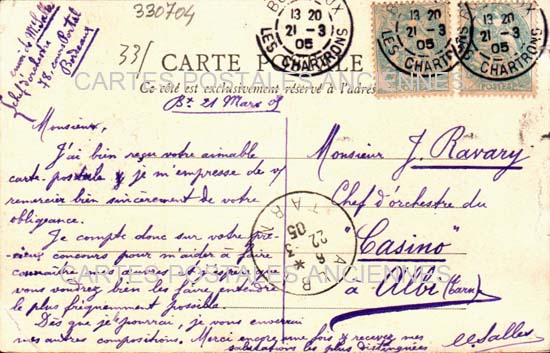 330704
33/
envoi de M. Salles
78, cours Portal
Bordeaux
BORDEAUX
13 20
21 - 3
05
LES CHARTRONS
13 20
21 - 3
05
LES CHARTRONS
CARTE POSTALE
Ce côté est exclusivement réservé à l'adresse
CARTES POSTALES ANCIENNES
Bx 21 Mars 05
Monsieur,
J'ai bien reçu votre aimable
carte postale & je m'empresse de v/
remercier bien sincèrement de votre
obligeance.
Je compte donc sur votre pré-
cieux concours pour m'aider à faire
connaître mes œuvres & j'espère que
vous voudrez bien les faire entendre
le plus fréquemment possible.
Dès que je le pourrai, je vous enverrai
mes autres compositions. Merci encore une fois & recevez mes
salutations les plus distinguées
E. Salles
Monsieur J. Ravary
Chef d'orchestre du
"Casino"
à Albi (Tarn)
ALBI
TARN
22 3
05
CARTES POSTALES ANCIENNES
CARTES POSTALES ANCIENNES